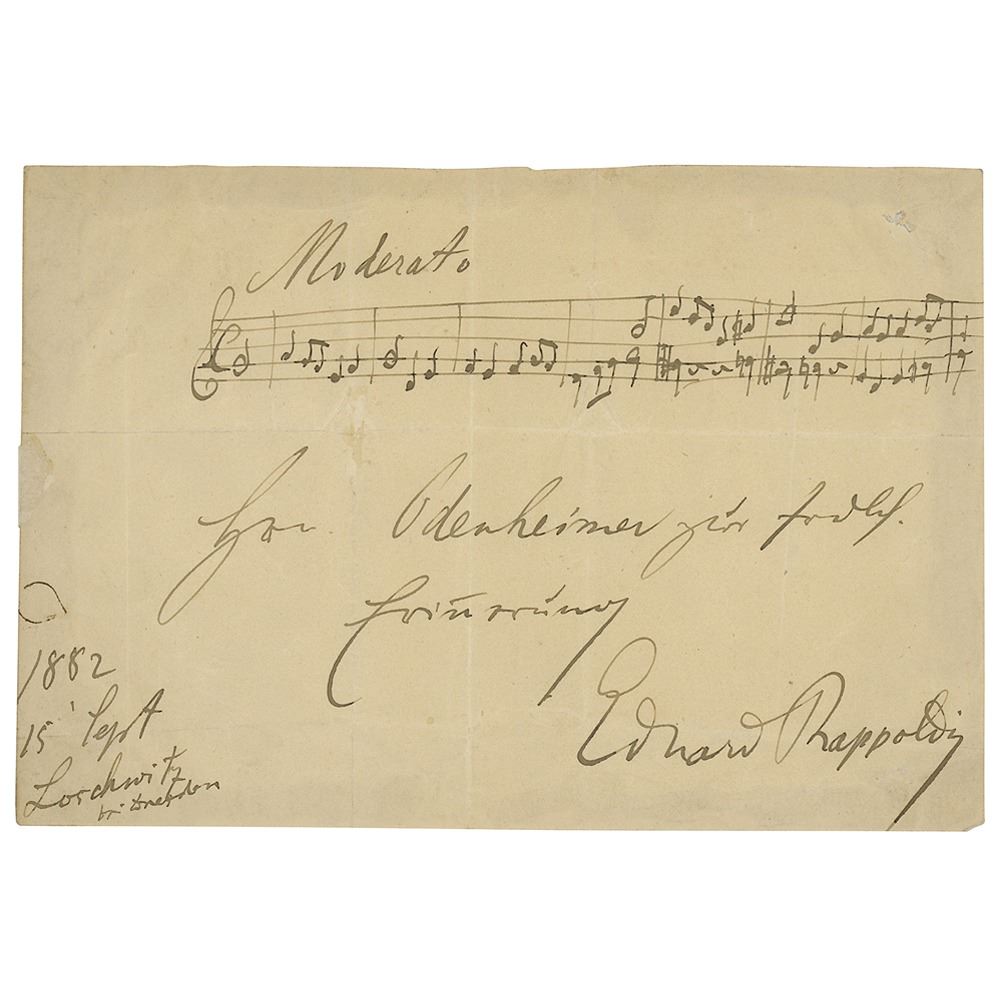 Moderato
Hrn. Odenheimer zur frdlch.
Erinnerung
Eduard Rappoldi
1882
15 Sept
Loschwitz
bei Dresden